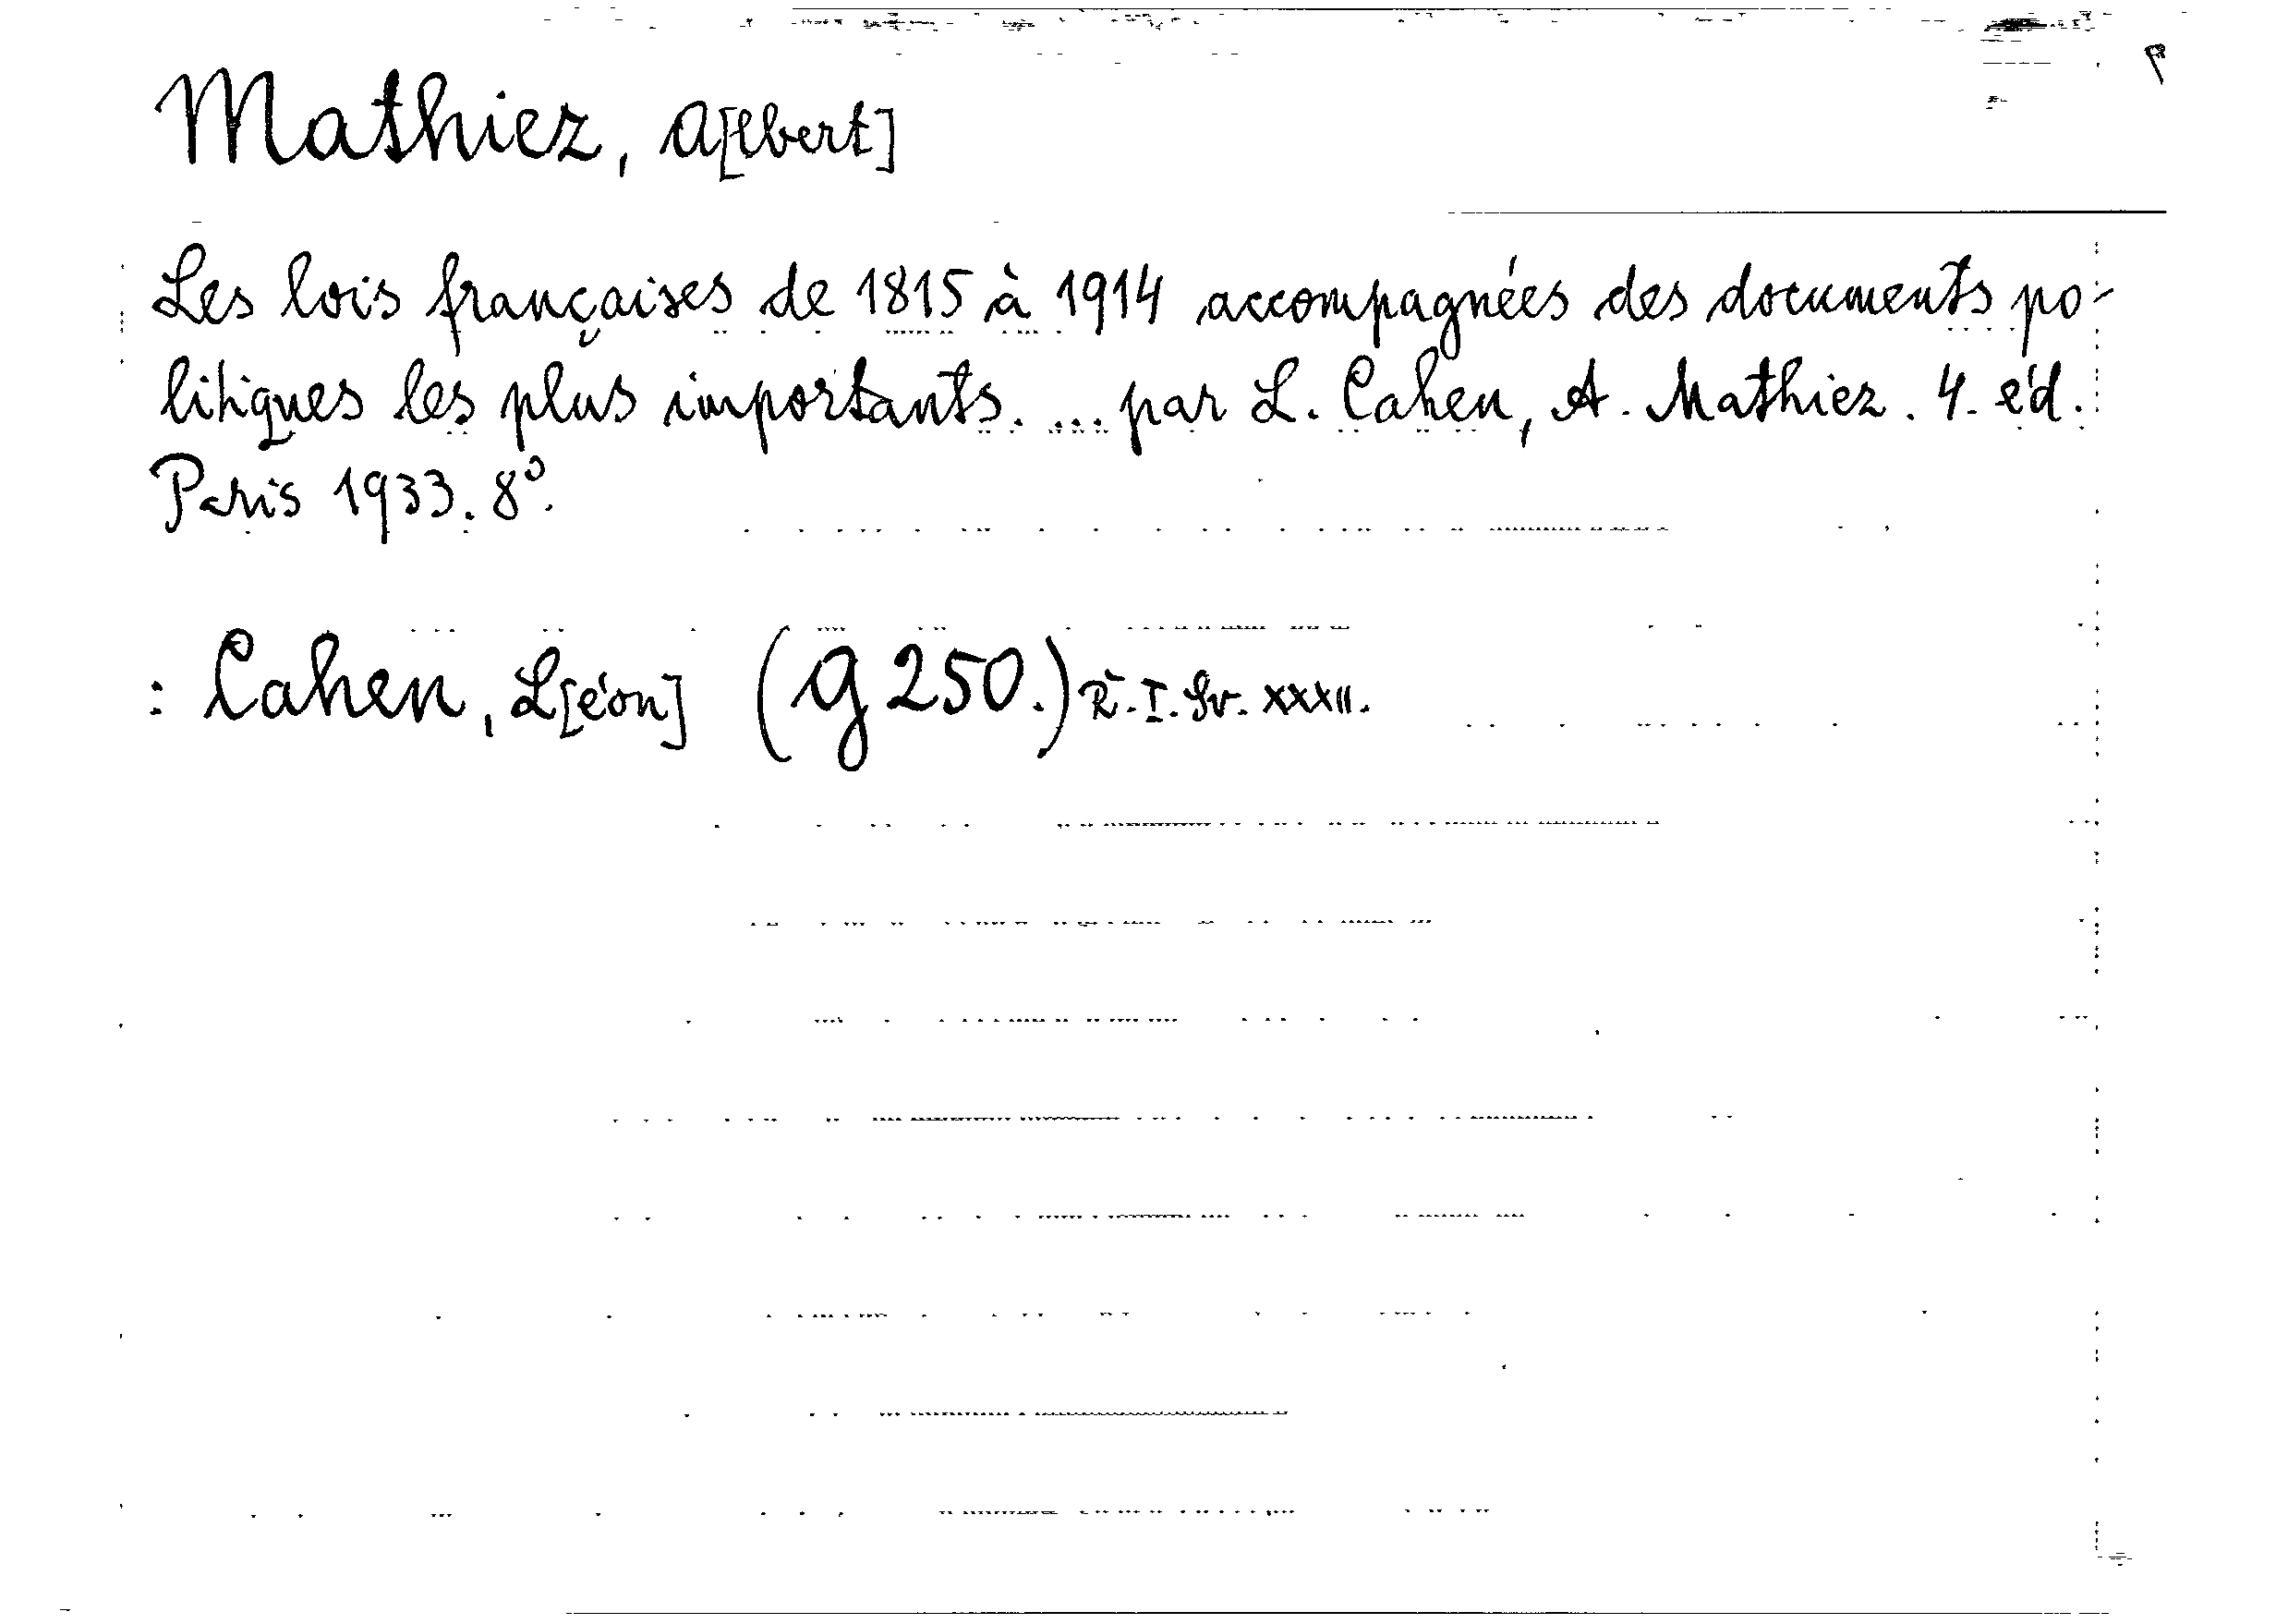 Mathiez, A[lbert]
Les lois françaises de 1815 à 1914 accompagnées des documents po-
litiques les plus importants. ... par L. Cahen, A. Mathiez. 4. éd.
Paris 1933. 8°.
: Cahen, L[éon] (g 250.) Ř. I. Sv. XXXII.